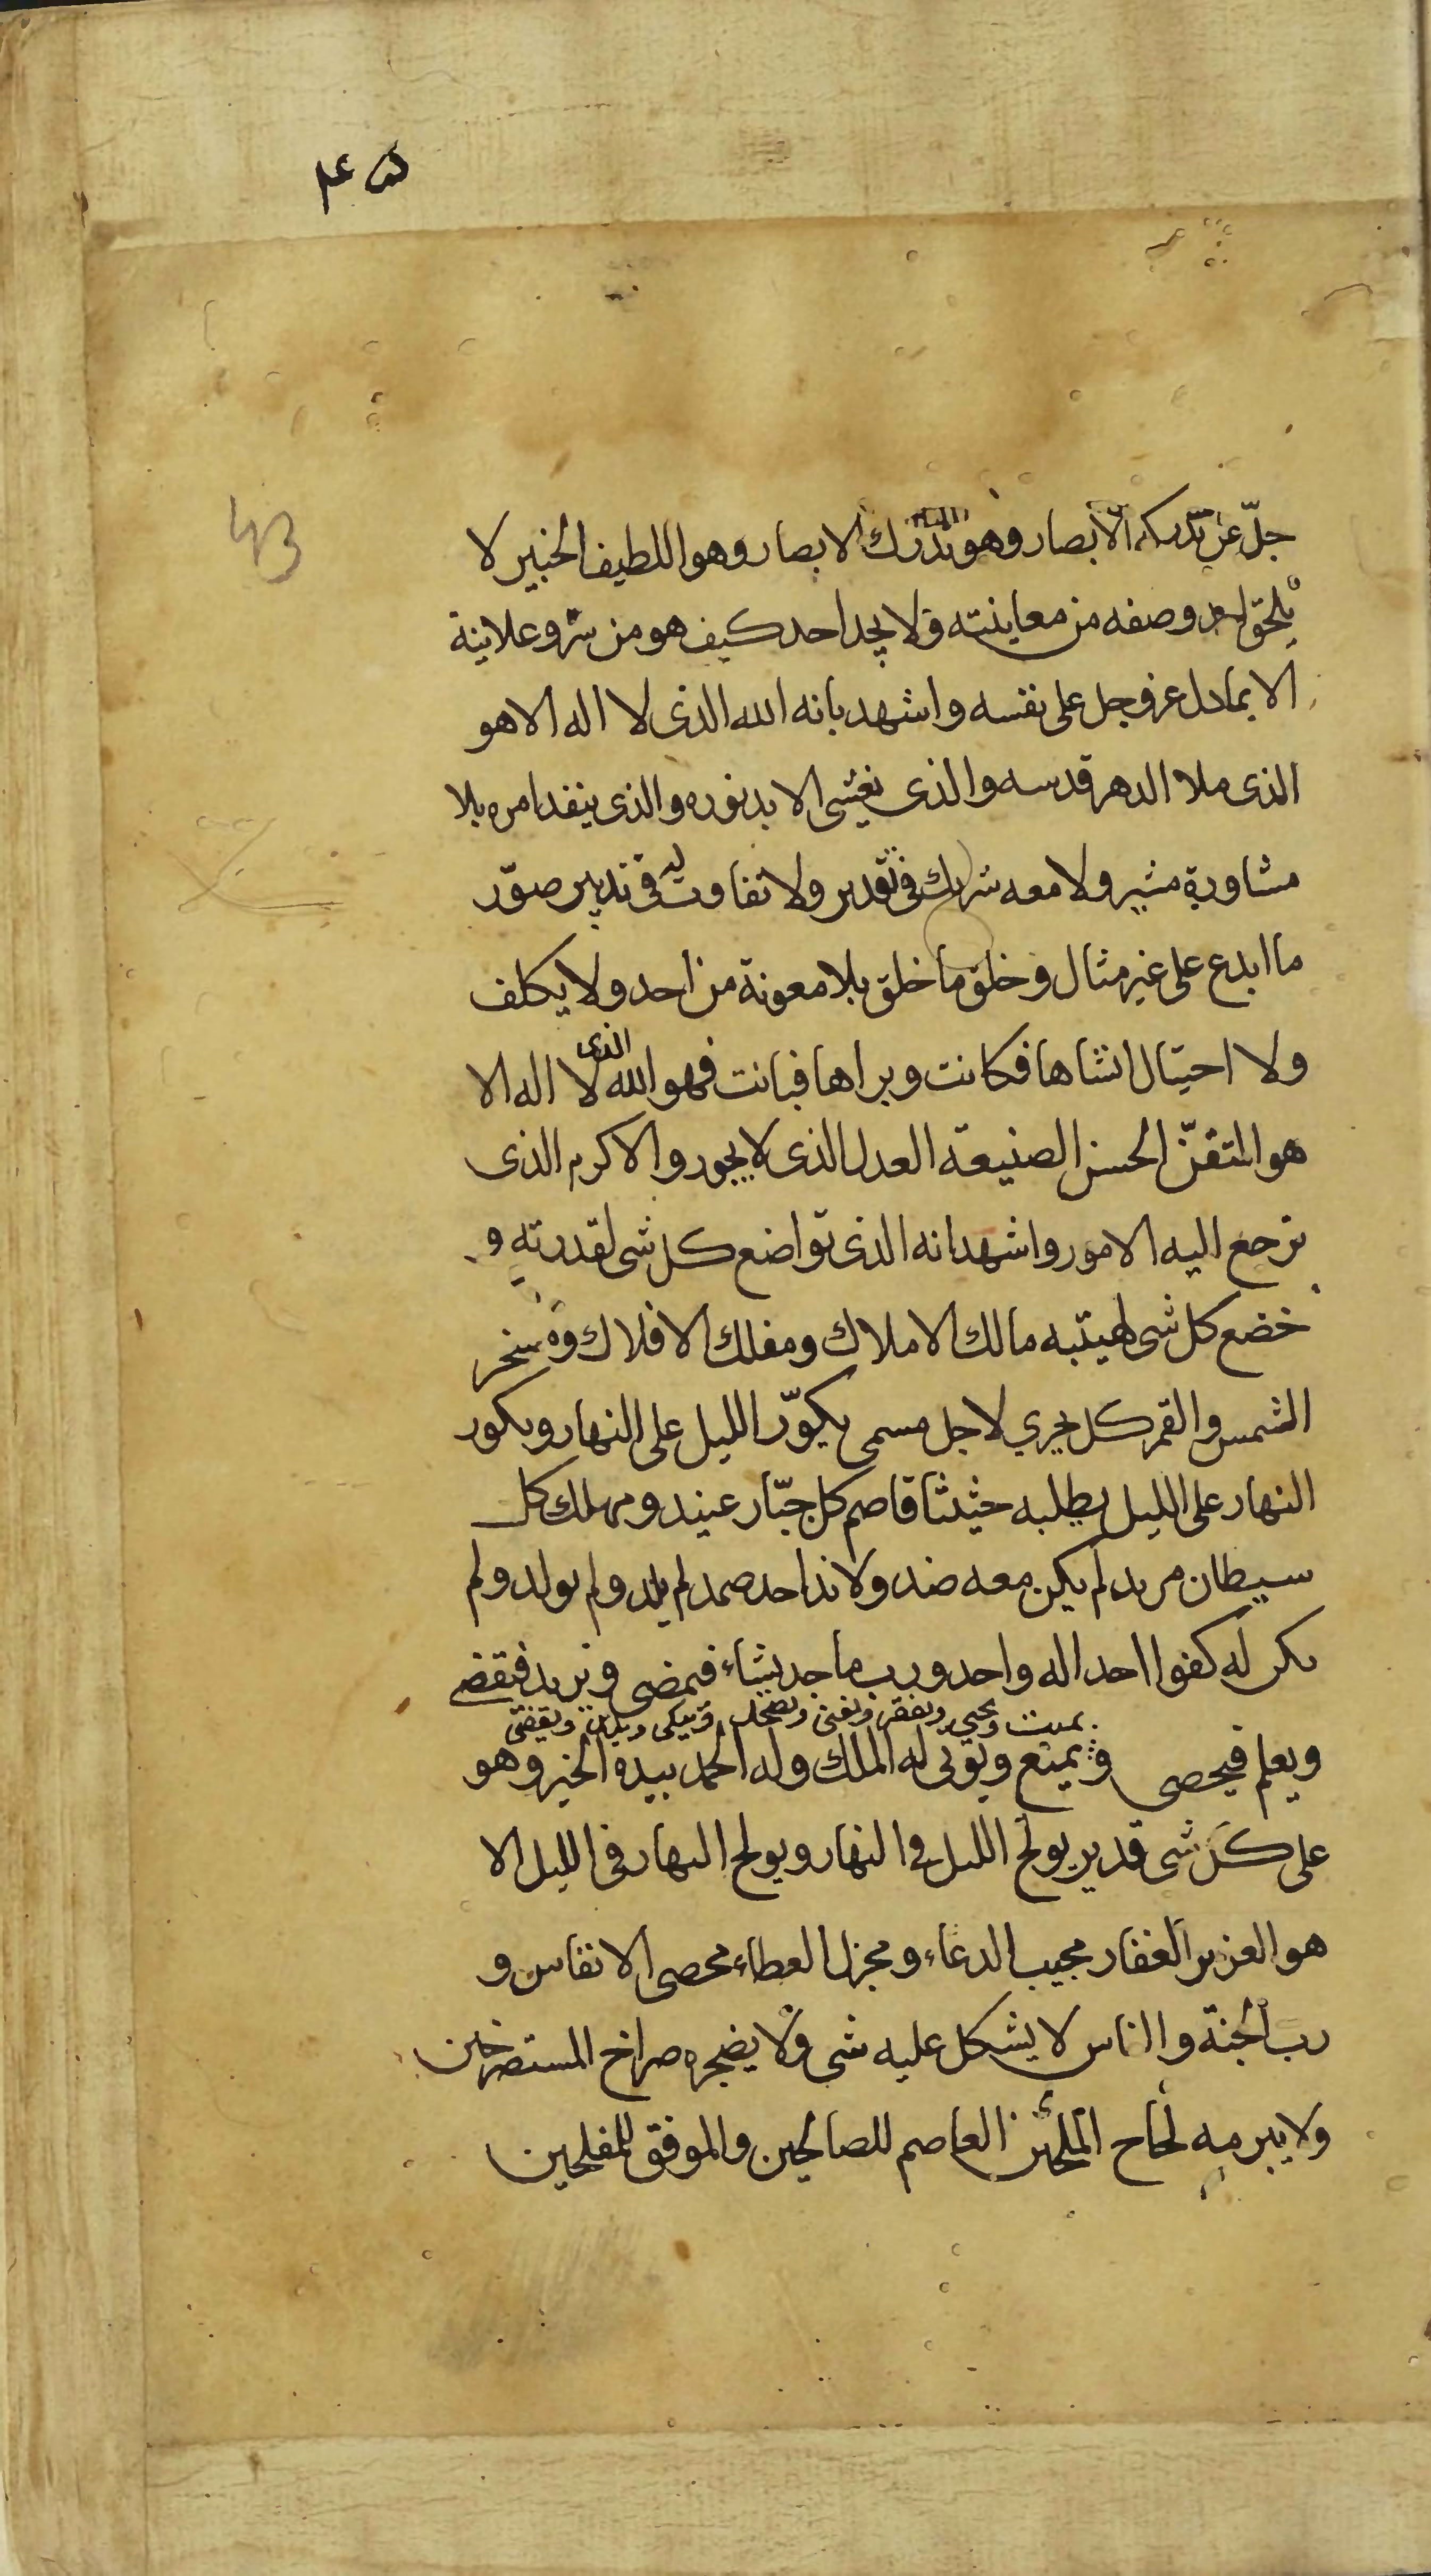 43
جلّ عن تدركه الابصار وهو يدرك الابصار وهو اللطيف الخبير لا
يلحق احد وصفه من معاينته ولا يجد احد كيف هو من سر وعلانية
الا بما دل عز وجل على نفسه واشهد بانه الله الذى لا اله الا هو
الذى ملا الدهر قدسه والذى يغشى الابد نوره والذى ينفد امره بلا
مشاورة مشير ولا معه شريك فى تقدير ولا تفاوت فى تدبير صوّر
ما ابدع على غير مثال وخلق ما خلق بلا معونة من احد ولا يكلف
ولا احتيال انشاها فكانت وبراها فبانت فهو الله الذى لا اله الا
هو المتقنّ الحسن الصنيعة العدل الذى لا يجور والاكرم الذى
ترجع اليه الامور واشهد انه الذى تواضع كل شى لقدرته و
خضع كل شى لهيتبه مالك الاملاك ومفلك الافلاك ومسخر
الشمس والقمر كل يجري لاجل مسمى يكوّر الليل على النهار ويكور
النهار على الليل يطلبه حثيثا قاصم كل جبّار عنيد ومهلك كل
سيطان مريد لم يكن معه ضد ولا ند احد صمد لم يلد ولم يولد ولم
يكن له كفوا احد اله واحد ورب ماجد يشاء فيمضى ويريد فيقضى
يميت ويحيى ويفقر ويغنى ويضحك ويبكى
ويعلم فيحصى ويمنع ويوتى له الملك وله الحمد بيده الخير وهو
على كل شى قدير يولج الليل فى النهار ويولج النهار فى الليل الا
هو العزيز الغفار مجيب الدعاء ومجزل العطاء محصى الانفاس و
رب الجنة والناس لا يشكل عليه شى ولا يضجره صراخ المستصرخين
ولا يبرمه لحاح الملحين العاصم للصالحين والموفق للمفلحين